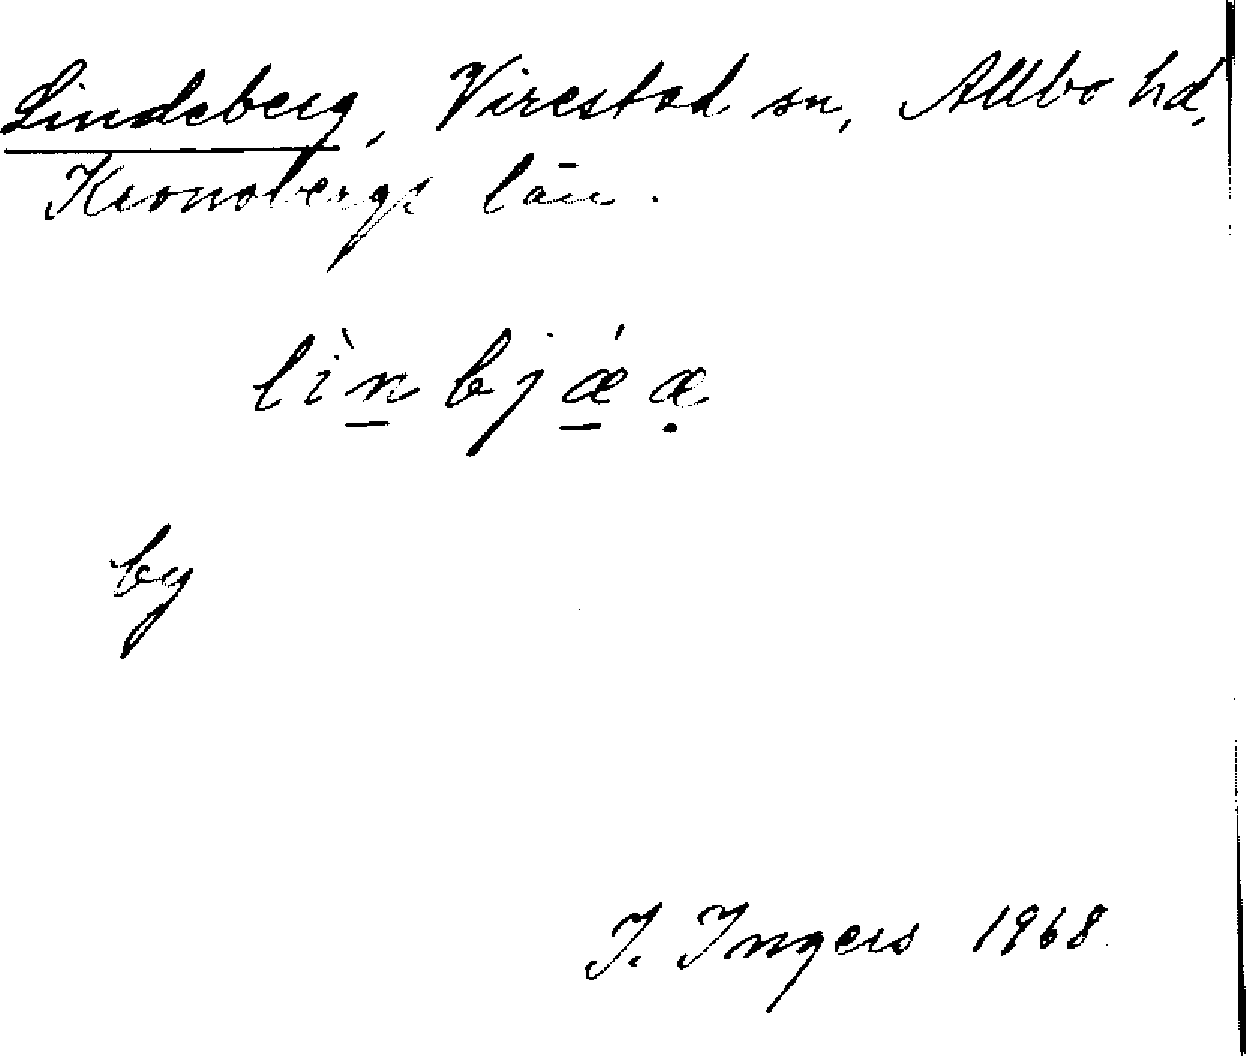 Lindeberg, Virestad sn, Allbo hd,
Kronobergs län.
lìn̲bjǽ̲æ̣
by
I. Ingers 1968